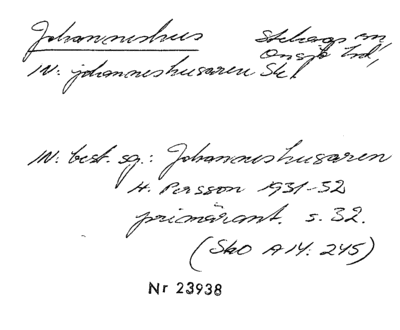 Johanneshus Stehags sn
Onsjö hd,
IN: johanneshusaren Sk.
IN: best. sg.: Johanneshusaren
H. Persson 1931-32
primärant. s. 32.
(Sk0 A 14: 245)
Nr 23938